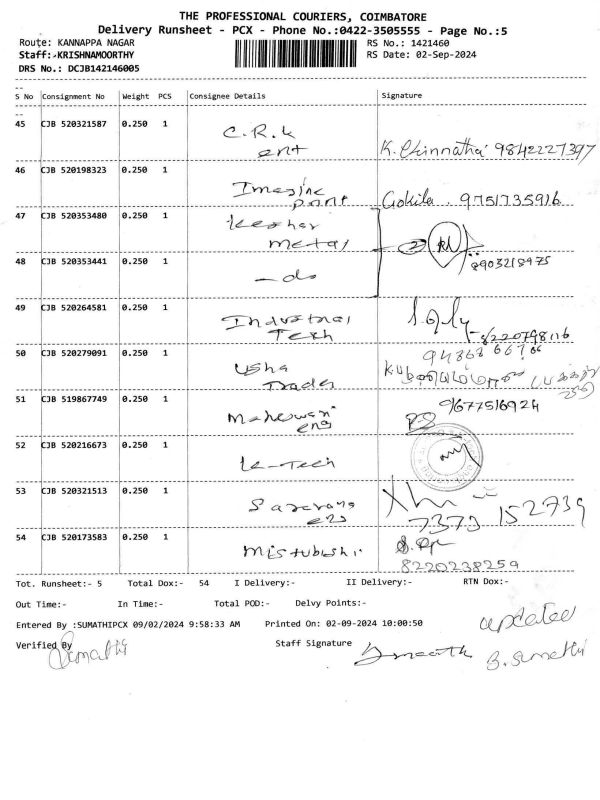 THE PROFESSIONAL COURIERS, COIMBATORE
Delivery Runsheet - PCX - Phone No.:0422-3505555 - Page No.:5
Route: KANNAPPA NAGAR RS No.: 1421460
Staff:-KRISHNAMOORTHY RS Date: 02-Sep-2024
DRS No.: DCJB142146005
S No Consignment No Weight PCS Consignee Details Signature
45 CJB 520321587 0.250 1 C.R.K
ent K. Chinnathai 9842227397
46 CJB 520198323 0.250 1 Imagine
print Gokila . 9751735916
47 CJB 520353480 0.250 1 Keshar
metal
48 CJB 520353441 0.250 1 -do 8903218975
49 CJB 520264581 0.250 1 Industrial
Tech 8220798116
50 CJB 520279091 0.250 1 Usha
Trader
51 CJB 519867749 0.250 1 Maheswari
eng 9677516924
52 CJB 520216673 0.250 1 K-Tech
53 CJB 520321513 0.250 1
7373 152739
54 CJB 520173583 0.250 1 Mistubishi
8220238259
Tot. Runsheet:- 5 Total Dox:- 54 I Delivery:- II Delivery:- RTN Dox:-
Out Time:- In Time:- Total POD:- Delvy Points:-
Entered By :SUMATHIPCX 09/02/2024 9:58:33 AM Printed On: 02-09-2024 10:00:50 updated
Verified By Sumathi Staff Signature B. Sumathi